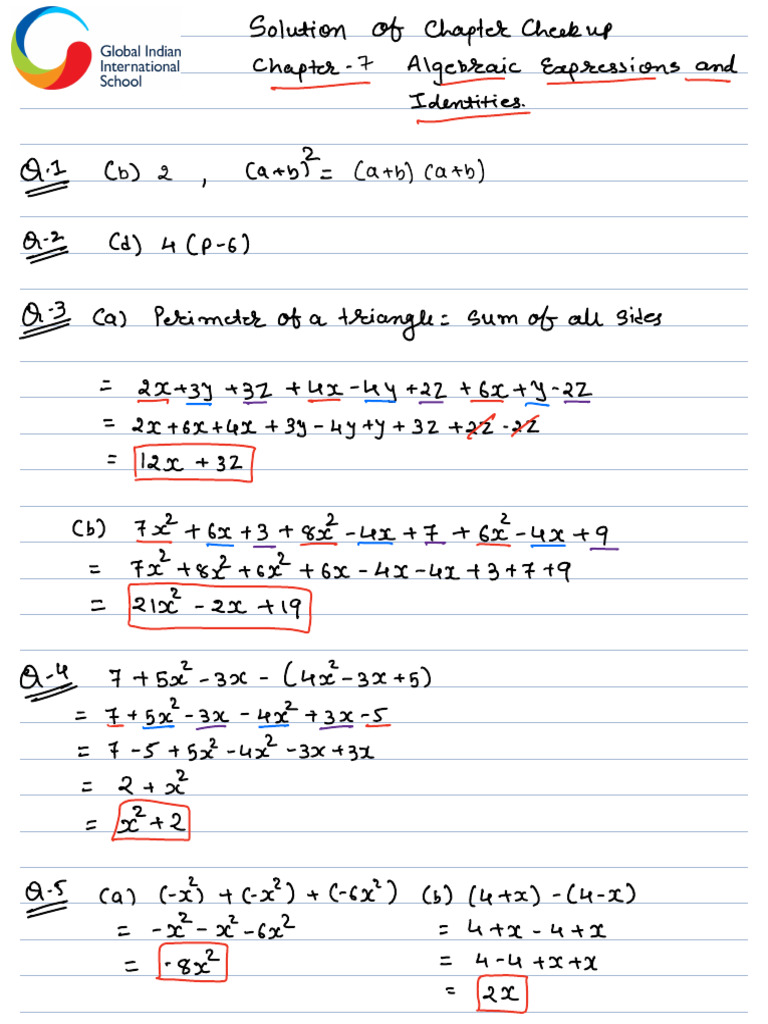 Global Indian
International
School
Solution of Chapter Checkup
Chapter-7 Algebraic Expressions and
Identities.
Q.1 (b) 2 , (a+b)² = (a+b) (a+b)
Q-2 (d) 4 (P-6)
Q-3 (a) Perimeter of a triangle = Sum of all sides
= 2x+3y+3z+4x-4y+2z+6x+y-2z
= 2x+6x+4x+3y-4y+y+3z+2z-2z
= 12x + 3z
(b) 7x²+6x+3+8x²-4x+7+6x²-4x+9
= 7x²+8x²+6x²+6x-4x-4x+3+7+9
= 21x²-2x+19
Q-4 7+5x²-3x-(4x²-3x+5)
= 7+5x²-3x-4x²+3x-5
= 7-5+5x²-4x²-3x+3x
= 2+x²
= x²+2
Q-5 (a) (-x²)+(-x²)+(-6x²) (b) (4+x)-(4-x)
= -x²-x²-6x² = 4+x-4+x
= -8x² = 4-4+x+x
= 2x